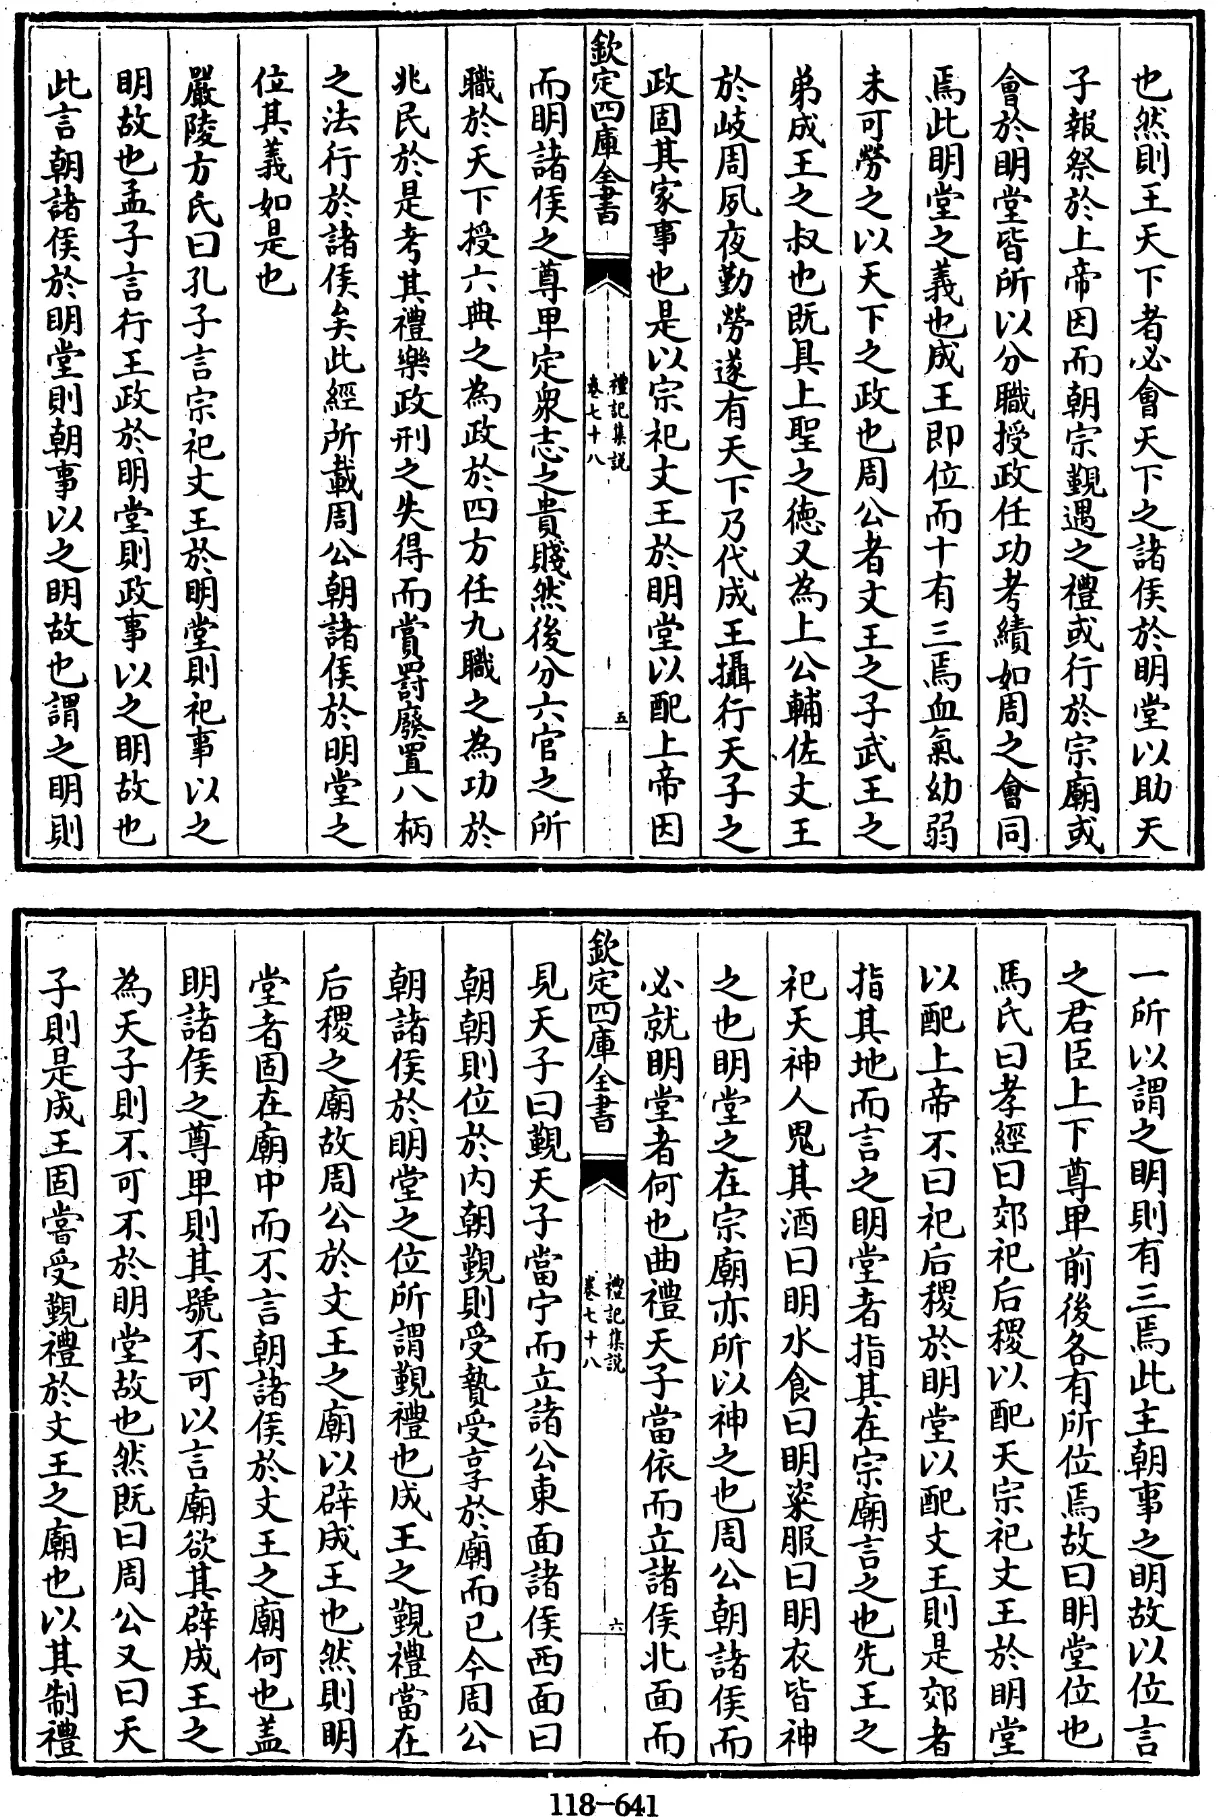 也然則王天下者必會天下之諸侯於明堂以助天
子報祭於上帝因而朝宗覲遇之禮或行於宗廟或
會於明堂皆所以分職授政任功考績如周之會同
焉此明堂之義也成王即位而十有三焉血氣幼弱
未可勞之以天下之政也周公者文王之子武王之
弟成王之叔也既具上聖之德又為上公輔佐文王
於岐周夙夜勤勞遂有天下乃代成王攝行天子之
政固其家事也是以宗祀文王於明堂以配上帝因
欽定四庫全書
禮記集説
卷七十八
五
而明諸侯之尊卑定眾志之貴賤然後分六官之所
職於天下授六典之為政於四方任九職之為功於
兆民於是考其禮樂政刑之失得而賞罰廢置八柄
之法行於諸侯矣此經所載周公朝諸侯於明堂之
位其義如是也
嚴陵方氏曰孔子言宗祀文王於明堂則祀事以之
明故也孟子言行王政於明堂則政事以之明故也
此言朝諸侯於明堂則朝事以之明故也謂之明則
一所以謂之明則有三焉此主朝事之明故以位言
之君臣上下尊卑前後各有所位焉故曰明堂位也
馬氏曰孝經曰郊祀后稷以配天宗祀文王於明堂
以配上帝不曰祀后稷於明堂以配文王則是郊者
指其地而言之明堂者指其在宗廟言之也先王之
祀天神人鬼其酒曰明水食曰明粢服曰明衣皆神
之也明堂之在宗廟亦所以神之也周公朝諸侯而
必就明堂者何也曲禮天子當依而立諸侯北面而
欽定四庫全書
禮記集説
卷七十八
六
見天子曰覲天子當宁而立諸公東面諸侯西面曰
朝朝則位於内朝覲則受贄受享於廟而已今周公
朝諸侯於明堂之位所謂覲禮也成王之覲禮當在
后稷之廟故周公於文王之廟以辟成王也然則明
堂者固在廟中而不言朝諸侯於文王之廟何也盖
明諸侯之尊卑則其號不可以言廟欲其辟成王之
為天子則不可不於明堂故也然既曰周公又曰天
子則是成王固嘗受覲禮於文王之廟也以其制禮
118-641